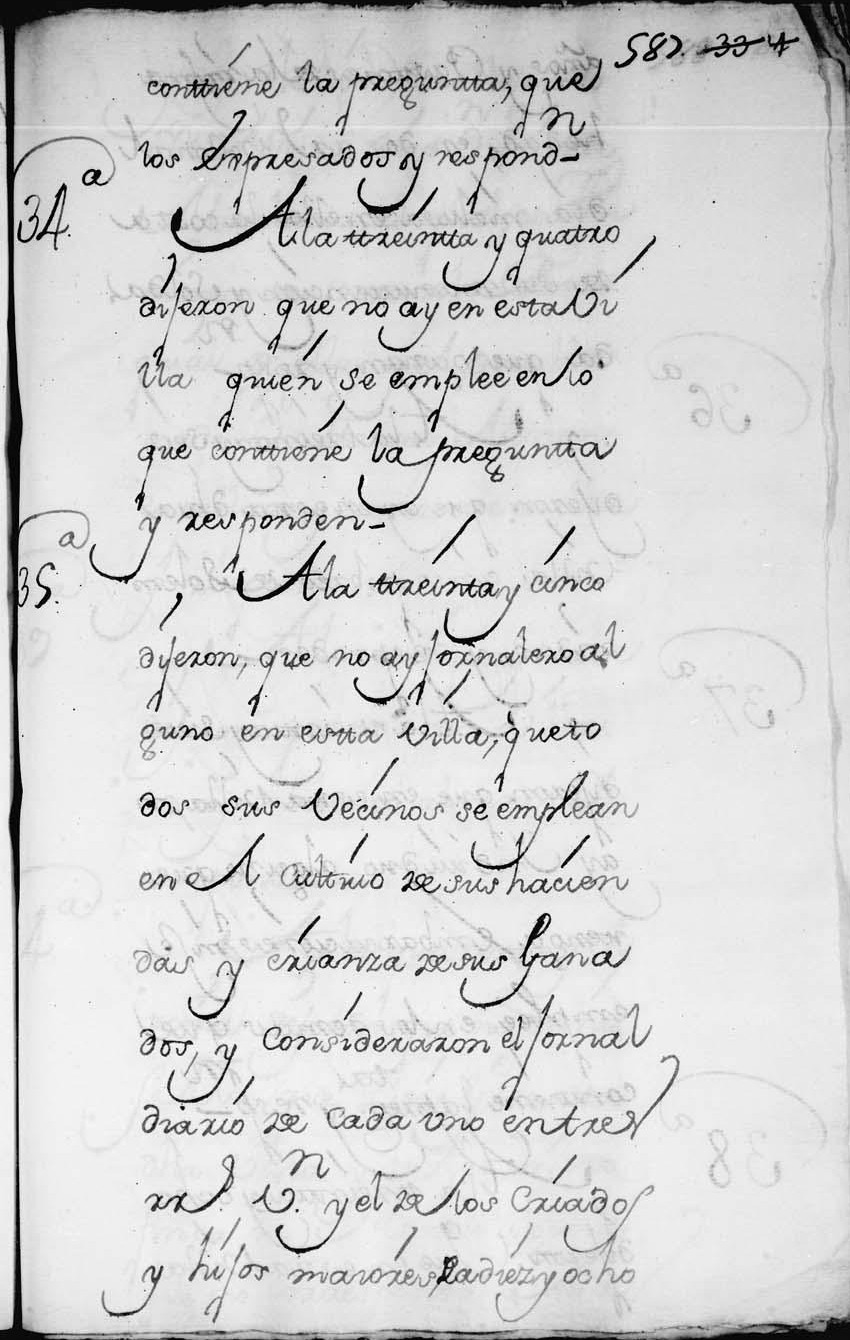 587. 334
conttiene la preguntta, que
los Enpresados y respond-n
34.a
A la ttreintta y quatro
dijeron que no ay en esta Vi
lla quien se emplee en lo
que conttiene la preguntta
y responden-
35.a
A la ttreinta y cinco
dijeron, que no ay jornalero al
guno en estta villa, que to
dos sus Vecinos se emplean
en el Cultivo de sus hacien
das y crianza de sus Gana
dos, y Consideraron el jornal
diario de cada uno en tres
rr.s V.n y el de los Criados
y hijos maiores a diez y ocho